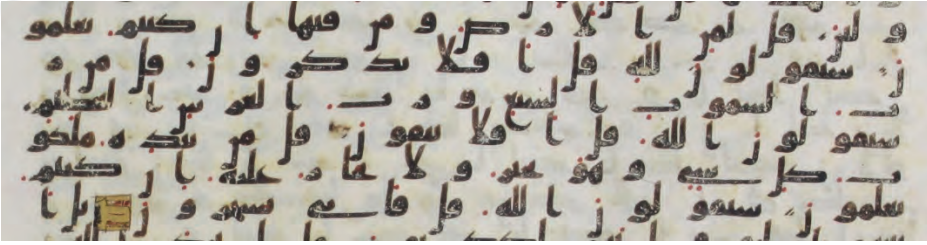 ولين قل لمن الارض ومن فيها ان كنتم تعلمو
ن سيقولون لله قل افلا تذكرون قل من ر
ب السموت السبع ورب العرش العظيم
سيقولون الله قل افلا تتقون قل من بيده ملكو
ت كل شي وهو يجير ولا يجار عليه ان كنتم
تعلمون سيقولون الله قل فانى تسحرون بل ا